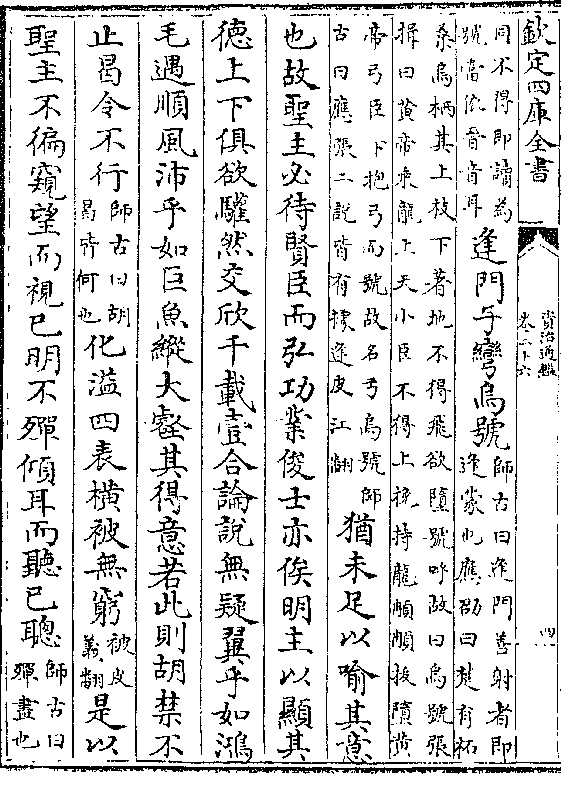 欽定四庫全書
資治通鑑
卷二十六
四
同不得即讀為
號當依晉音耳
逢門子彎烏號
師古曰逢門善射者即
逢蒙也應劭曰楚有柘
桑烏栖其上枝下著地不得飛欲墮號呼故曰烏號張
揖曰黃帝乘龍上天小臣不得上挽持龍䫇䫇拔墮黃
帝弓臣下抱弓而號故名弓烏號師
古曰應張二說皆有據逢皮江翻
猶未足以喻其意
也故聖主必待賢臣而弘功業俊士亦俟明主以顯其
德上下俱欲驩然交欣千載壹合論說無疑翼乎如鴻
毛遇順風沛乎如巨魚縱大壑其得意若此則胡禁不
止曷令不行
師古曰胡
曷皆何也
化溢四表橫被無窮
被皮
義翻
是以
聖主不徧窺望而視已明不殫傾耳而聽已聰
師古曰
殫盡也